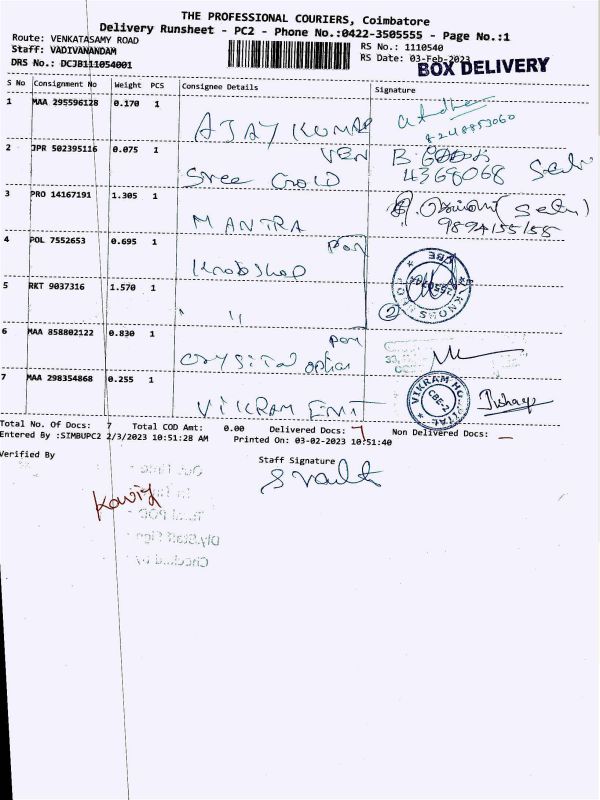 THE PROFESSIONAL COURIERS, Coimbatore
Delivery Runsheet - PC2 - Phone No.:0422-3505555 - Page No.:1
Route: VENKATASAMY ROAD RS No.: 1110540
Staff: VADIVANANDAM RS Date: 03-Feb-2023
DRS No.: DCJB111054001 BOX DELIVERY
S No Consignment No Weight PCS Consignee Details Signature
1 MAA 295596128 0.170 1 AJAY KUMAR
8248853060
2 JPR 502395116 0.075 1 Sree Gold
4368068
3 PRO 14167191 1.305 1 MANTRA
9894155155
4 POL 7552653 0.695 1 Knobshop
CBE
5 RKT 9037316 1.570 1 " 2
6 MAA 858802122 0.830 1
7 MAA 298354868 0.255 1 VIKRAM ENT
VIKRAM HOSPITAL
CBE-2
Total No. Of Docs: 7 Total COD Amt: 0.00 Delivered Docs: 7 Non Delivered Docs: -
Entered By :SIMBUPC2 2/3/2023 10:51:28 AM Printed On: 03-02-2023 10:51:40
Verified By Staff Signature